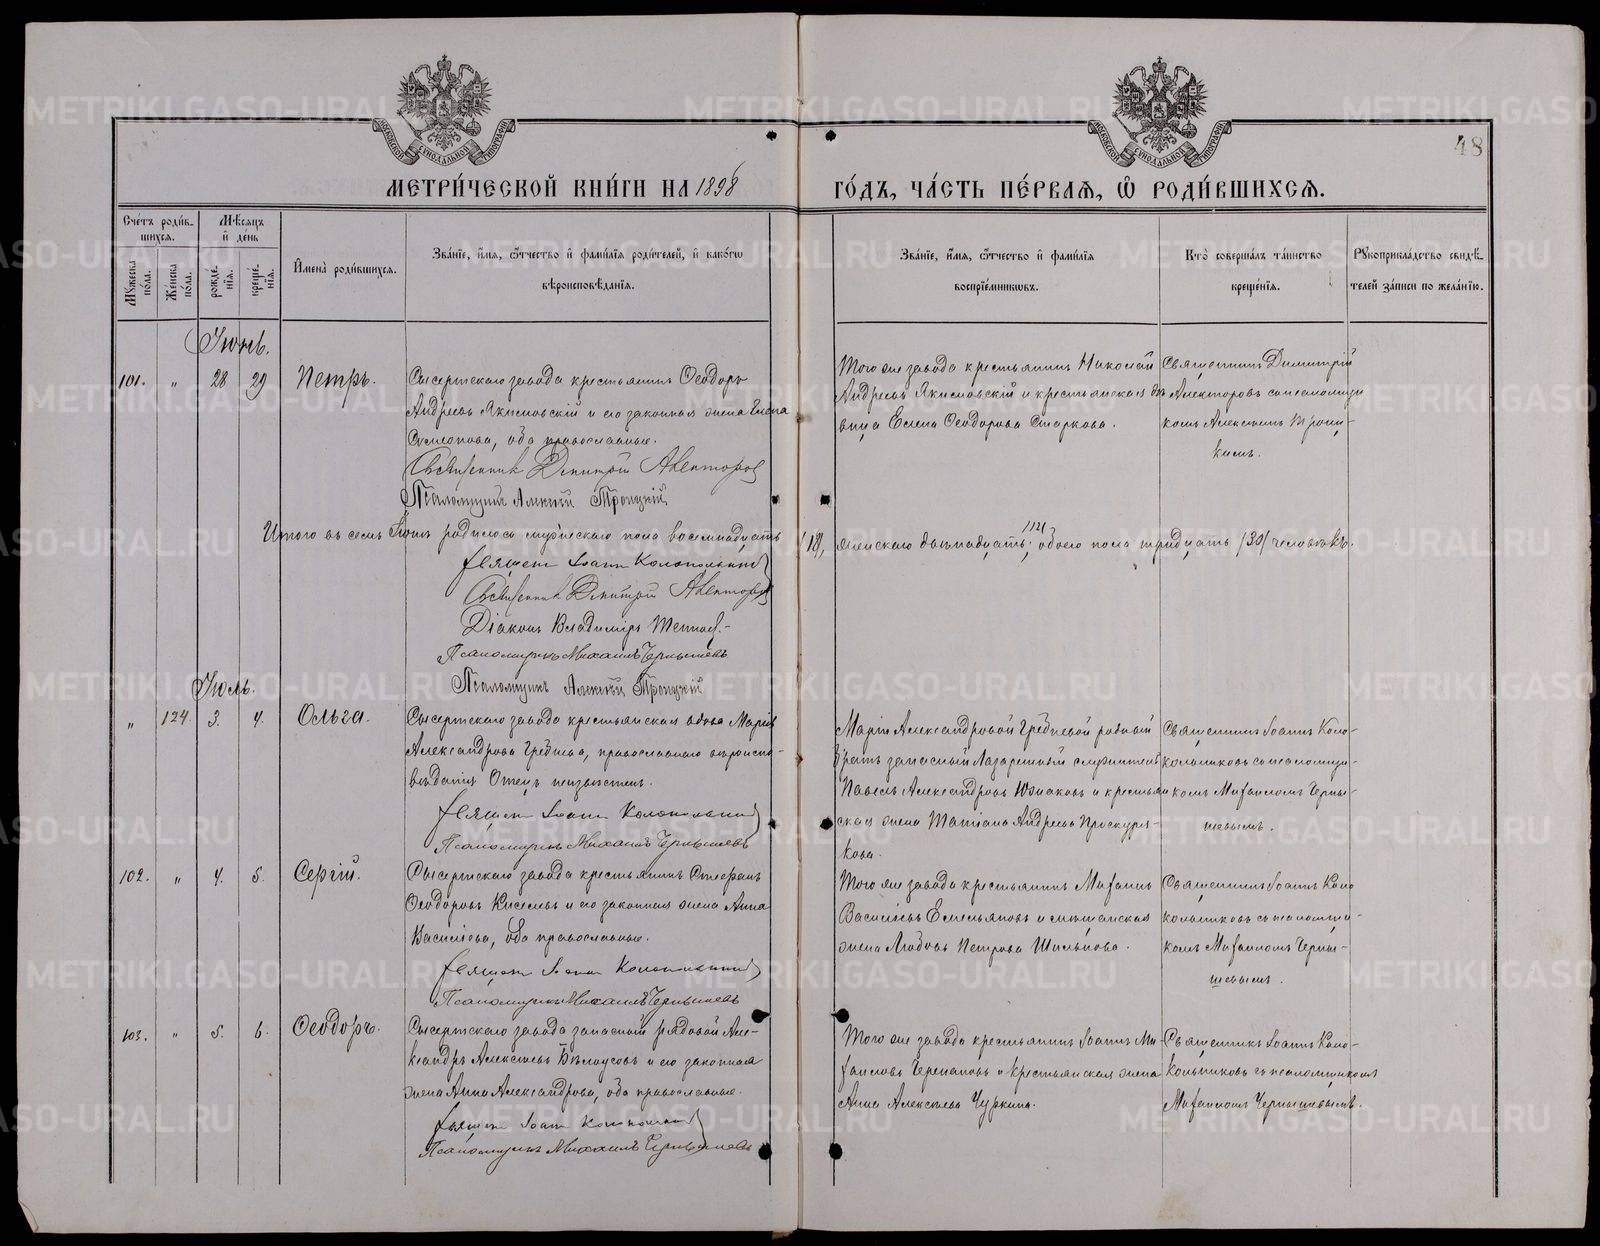 48
МЕТРИ́ЧЕСКОЙ КНИ́ГИ НА 1898 ГО́ДЪ, ЧА́СТЬ ПЕ́РВАЯ, Ѽ РОДИ́ВШИХСЯ.
Сче́тъ роди́в-
шихся.
Мѣ́сяцъ
и҆ де́нь
Мꙋ́жеска по́ла.
Же́нска по́ла.
рожде́-
нїя.
креще́-
нїя.
И҆мена̀ роди́вшихся.
Зва́нїе, и҆́мя, ѻ҆́тчество и҆ фами́лїя роди́телей, и҆ како́гѡ
вѣроисповѣ́данїя.
Зва́нїе, и҆́мя, ѻ҆́тчество и҆ фами́лїя
воспрїе́мникѡвъ.
Кто̀ соверша́лъ та́инство
креще́нїя.
Рꙋкоприкла́дство свидѣ́-
телей за́писи по жела́нїю.
Іюнь.
101. " 28 29 Петръ.
Сысертскаго завода крестьянинъ Ѳеодоръ
Андреевъ Якимовскій и его законная жена
Симеонова, оба православные.
Священникъ Димитрій Авекторов
Псаломщикъ Алексѣй Троицкій
Того же завода крестьянинъ Николай
Андреевъ Якимовскій и крестьянская дѣ
вица Елена Ѳеодорова Старкова.
Священникъ Димитрій
Авекторовъ съ псаломщи
комъ Алексѣемъ Троиц-
кимъ.
Итого въ семъ Іюнѣ родилось мужескаго пола восемнадцать /18/, женскаго двѣнадцать /12/, обоего пола тридцать /30/ человѣкъ.
Священ Іоанн Колокольник
Священник Димитрій Авекторов
Діаконъ Владиміръ
Псаломщикъ Михаилъ Чернышевъ
Псаломщикъ Алексѣй Троицкій
Іюль.
" 124 3. 4. Ольга.
Сысертскаго завода крестьянская вдова Марія
Александрова Гребнева, православнаго вѣроиспо-
вѣданія Отецъ неизвѣстенъ.
Священ Іоанн Колокольник
Псаломщикъ Михаилъ Чернышевъ
Маріи Александровой Гребневой родный
братъ запасный лазаретный служитель
Павелъ Александровъ и крестьян
ская жена Татіана Андреева Проскуря-
кова.
Священникъ Іоаннъ Коло-
кольниковъ съ псаломщи-
комъ Михаиломъ Черны-
шевымъ.
102. " 4. 5. Сергій.
Сысертскаго завода крестьянинъ Стефанъ
Ѳеодоровъ Киселевъ и его законная жена Анна
Василіева, оба православные.
Священ Іоанн Колокольник
Псаломщикъ Михаилъ Чернышевъ
Того же завода крестьянинъ Михаилъ
Василіевъ Емельяновъ и мѣщанская
жена Любовь Петрова
Священникъ Іоаннъ Коло
кольниковъ съ псаломщи-
комъ Михаиломъ Черны-
шевымъ.
103. " 5. 6. Ѳеодоръ.
Сысертскаго завода запасный рядовой Але-
ксандръ Алексѣевъ Бѣлоусовъ и его законная
жена Анна Александрова, оба православные.
Священ Іоанн Колокольник
Псаломщикъ Михаилъ Чернышевъ
Того же завода крестьянинъ Іоаннъ Ми-
хаиловъ Черепановъ и крестьянская жена
Анна Алексѣева Чуркина.
Священникъ Іоаннъ Коло-
кольниковъ съ псаломщикомъ
Михаиломъ Чернышевымъ.
METRIKI.GASO-URAL.RU